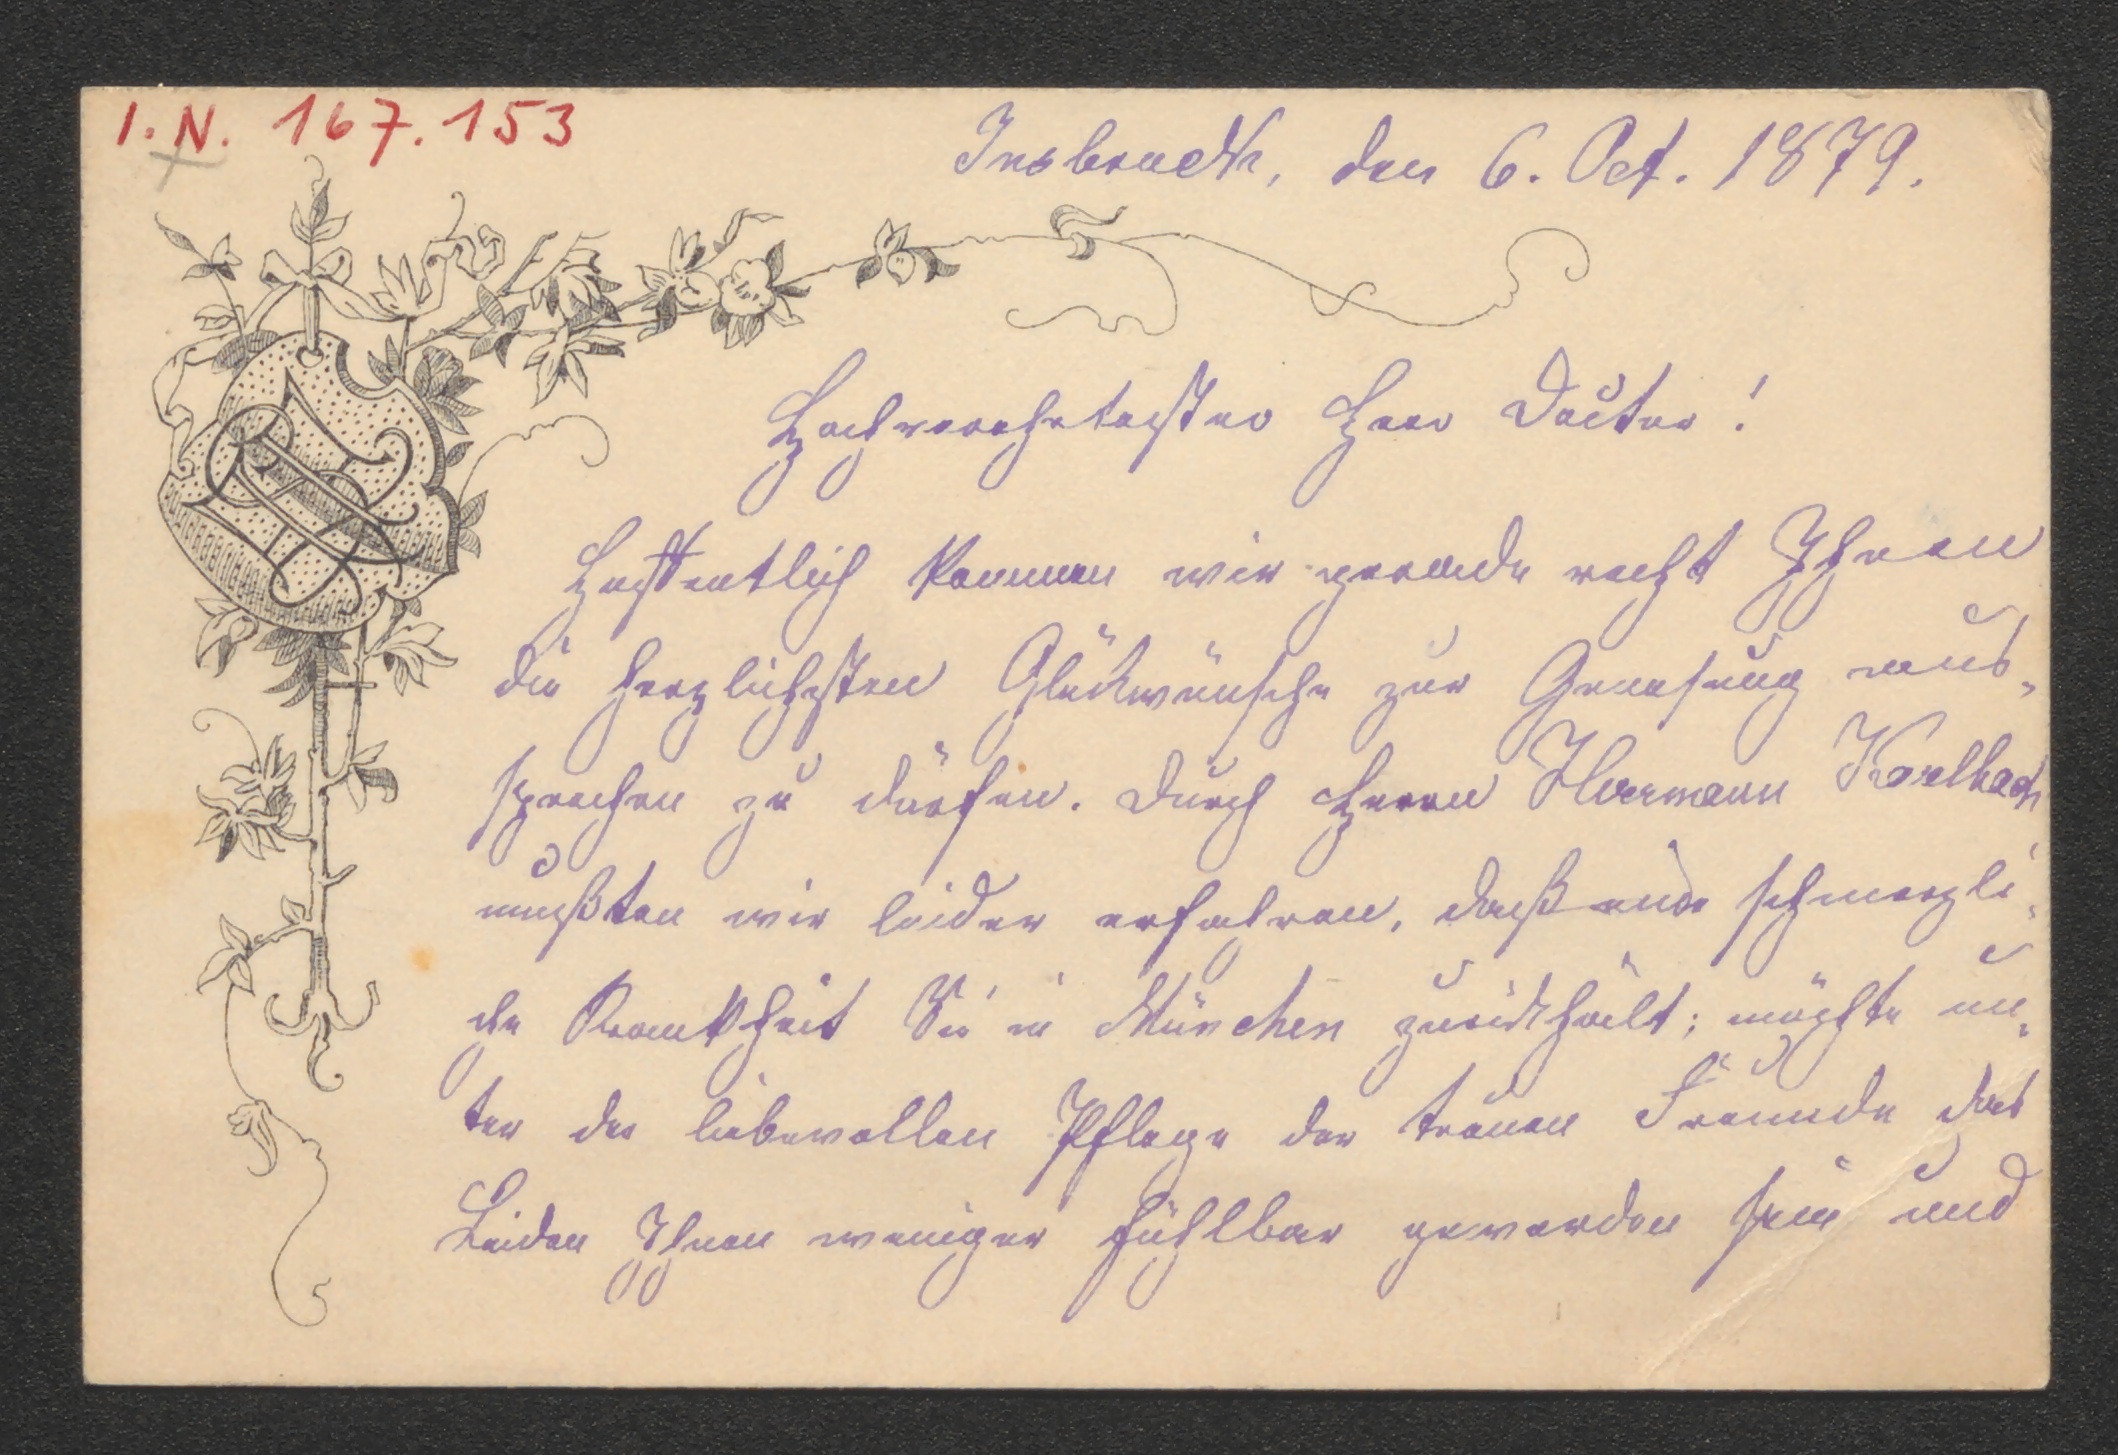 I. N. 167.153
Insbruck, den 6. Oct. 1879.
Hochverehrtester Herr Doctor!
Hoffentlich kommen wir gerade recht Ihnen
die herzlichsten Glückwünsche zur Genesung aus-
sprechen zu dürfen. Durch Herrn Hermann
mußten wir leider erfahren, daß eine schmerzli-
che Krankheit Sie in München zurückhält; möchte un-
ter der liebevollen Pflege der treuen Freunde das
Leiden Ihnen weniger fühlbar geworden sein und